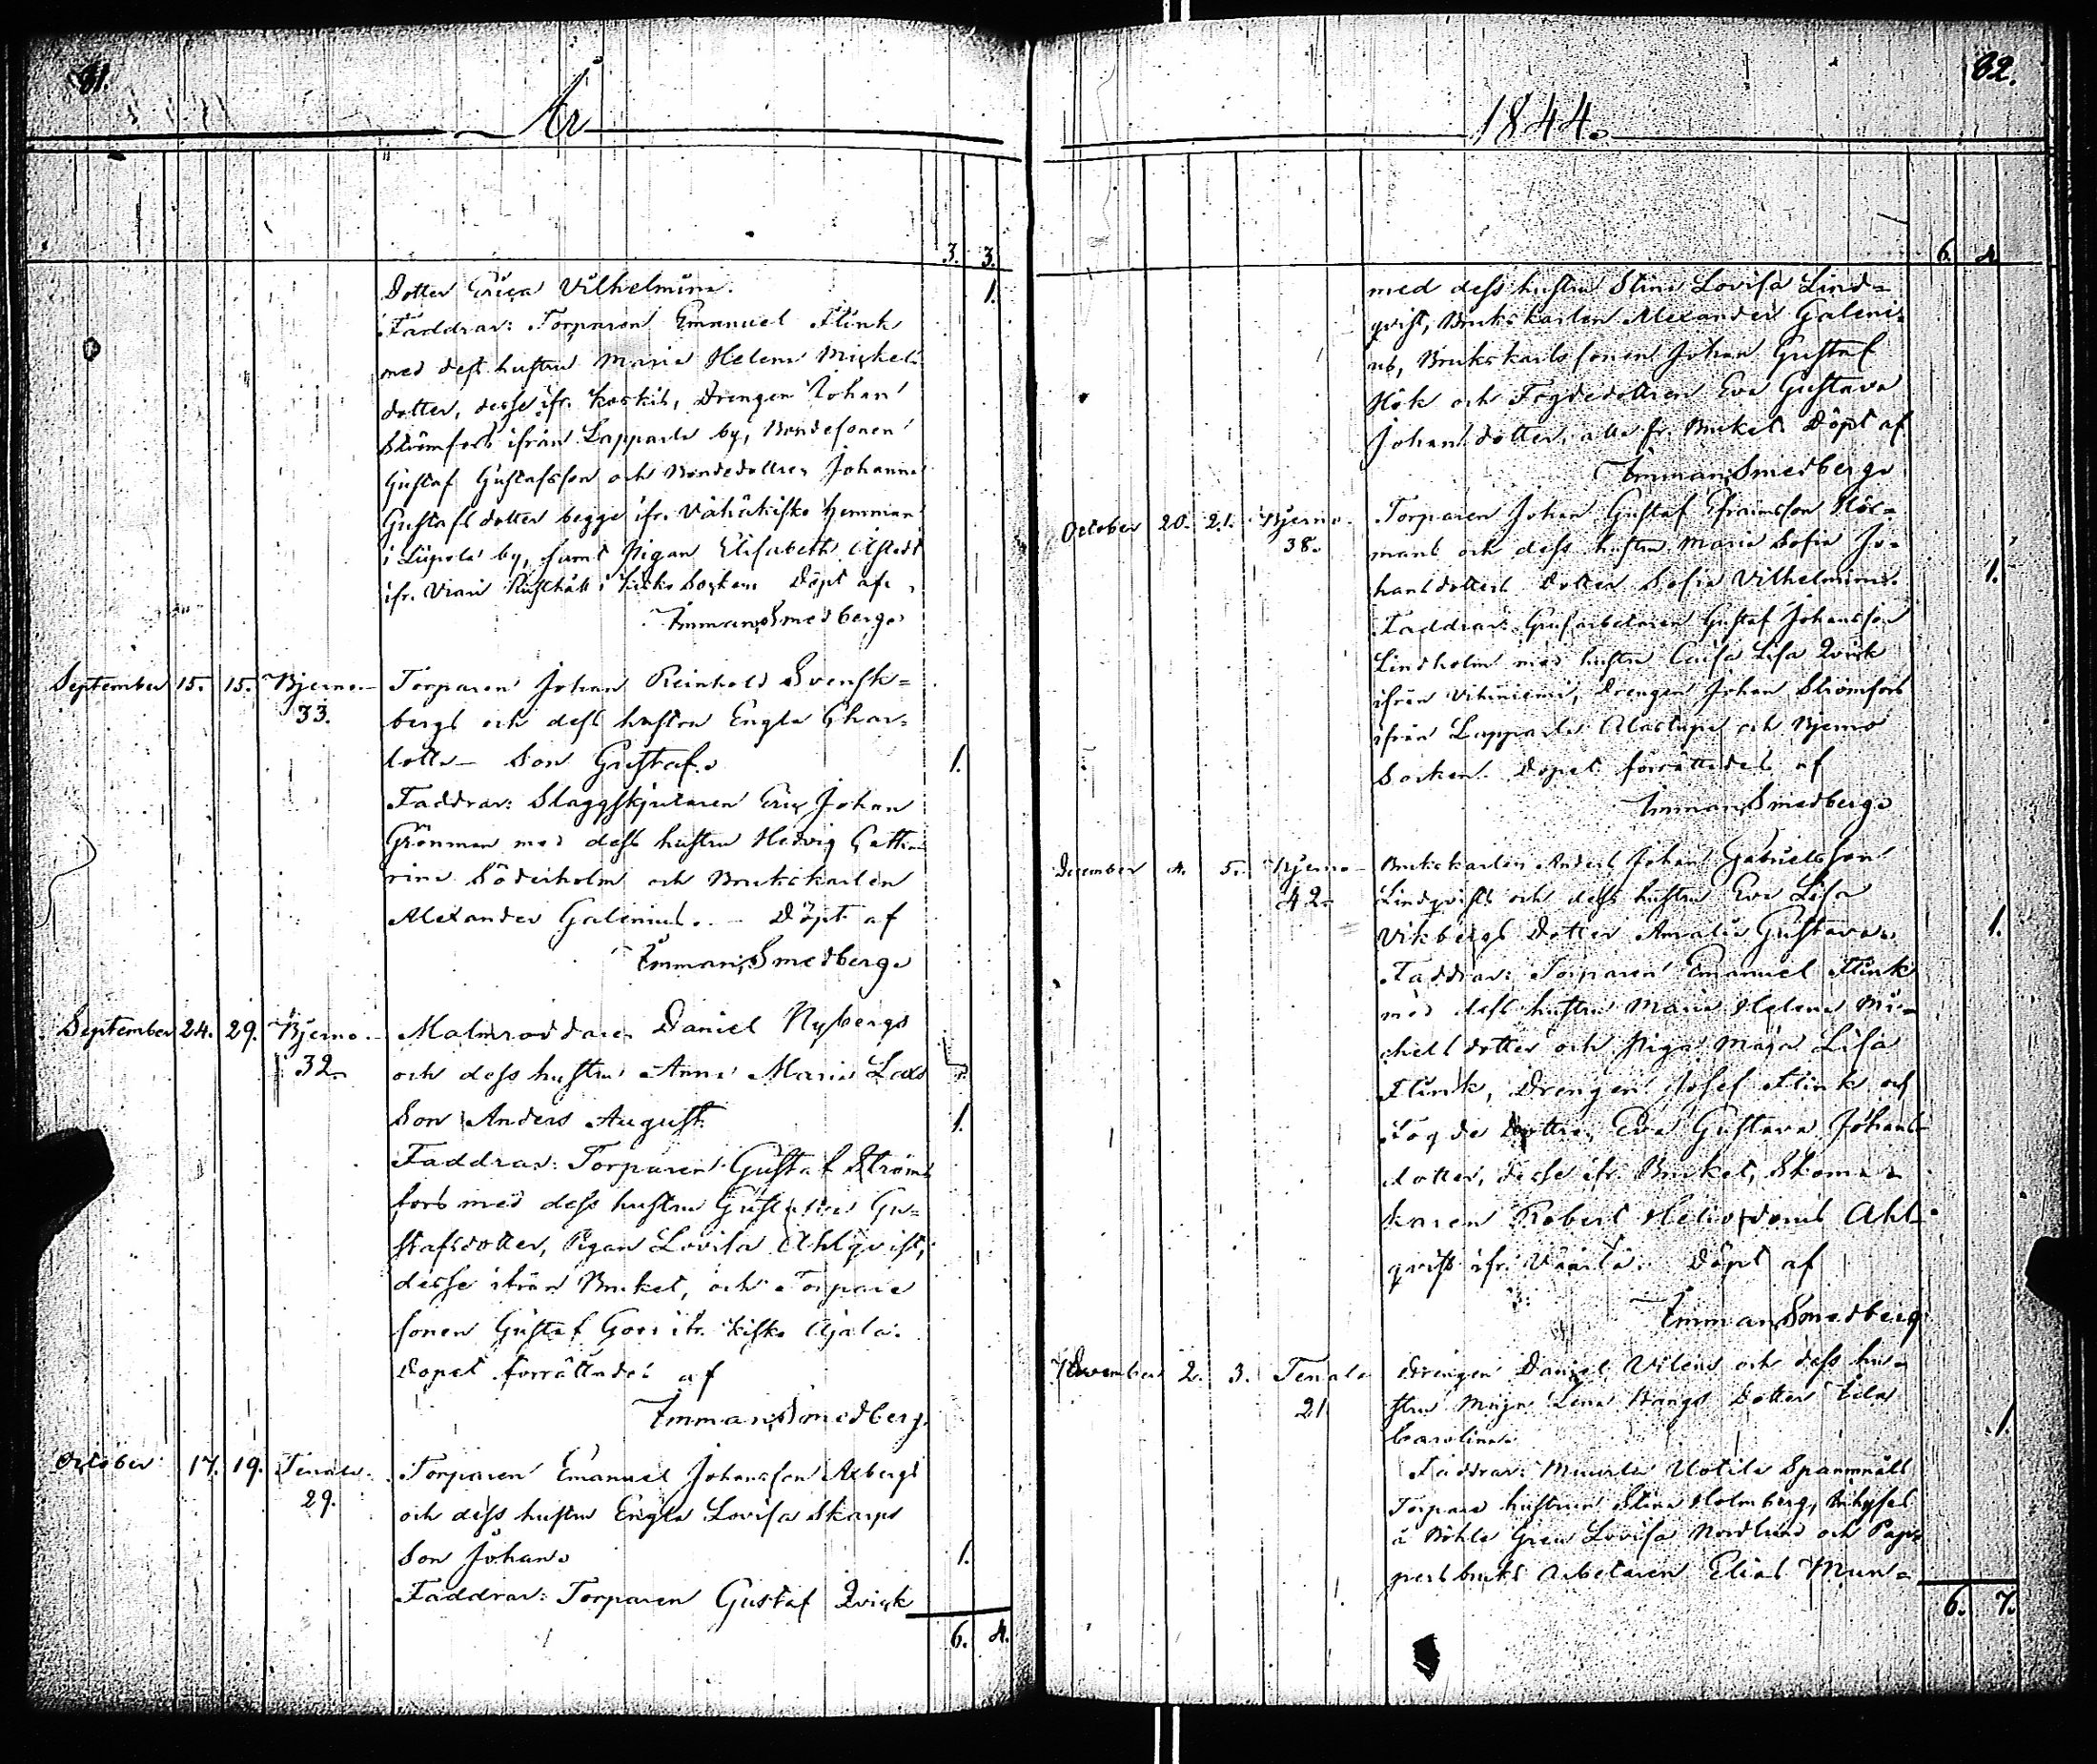 81.
År
3. 3.
Dotter Erica Vilhelmina. 1.
Faddrar: Torparen Emanuel Flink
med dess hustru Maria Helena Mickels
dotter, desse ifr. Koskis, Drengen Johan
Strömfors ifrån Lapparla by, Bondesonen
Gustaf Gustafsson och Bondedottren Johanna
Gustafs dotter begge ifr. Vähäkisko Hemman
i Liipola by, samt Pigan Elisabeth
ifr. Viari Rusthåll i Kisko Socken. Döpt af
Imman. Smedberg.
September 15. 15. Bjerno. Torparen Johan Reinhold Svensk=
33. bergs och dess hustru Engla Char=
lotta – Son Gustaf. 1.
Faddrar: Slaggskjutaren Eric Johan
Grönman med dess hustru Hedvig Catha
rina Söderholm och Brukskarlen
Alexander Galenius. – Döpt af
Imman. Smedberg.
September 24. 29. Bjerno. Malmroddaren Daniel Nybergs
32. och dess hustru Anna Maria Lax
Son Anders August. 1.
Faddrar: Torparen Gustaf Ströms
fors med dess hustru Gustafva Gu=
stafsdotter, Pigan Lovisa Ahlqvist,
desse ifrån Bruket, och Torpare
sonen Gustaf ifr. Kisko Ajala.
Dopet förrättades af
Imman. Smedberg.
October 17. 19. Tenala. Torparen Emanuel Johansson Axbergs
29. och dess hustru Engla Lovisa Skarps
Son Johan. 1.
Faddrar: Torparen Gustaf Qvick
6. 4.
82.
1844.
6. 4
med dess hustru Stina Lovisa Lind=
qvist, Brukskarlen Alexander Galeni=
us, Brukskarlssonen Johan Gustaf
Hök och Fogdedottren Eva Gustava
Johansdotter, alla fr. Bruket. Döpt af
Imman. Smedberg.
October 20. 21. Bjerno. Torparen Johan Gustaf Efraimsson
38. mans och dess hustru Maria Sofia Jo=
hansdotters Dotter Sofia Vilhelmina. 1.
Faddrar: Grufarbetaren Gustaf Johansson
Lindholm med hustru Caisa Lisa Qvick
ifrån Vihiniemi, Drengen Johan Strömfors
ifrån Lapparla Alastupa och Bjerno
Socken. Dopet förrättades af
Imman. Smedberg.
December 4. 5. Bjerno – Brukskarlen Anders Johan Gabrielsson
42. Lindqvists och dess hustru Eva Lisa
Vikbergs Dotter Amalia Gustava. 1.
Faddrar: Torparen Emanuel Flink
med dess hustru Maria Helena Mi=
chels dotter och Piga Maja Lisa
Flink, Drengen Josef Flink och
Fogde Dottren Eva Gustava Johans
dotter, desse ifr. Bruket, Skoma=
karen Robert Heliodorus Ahl=
qvist ifr. Döpt af
Imman. Smedberg
December 2. 3. Tenala Drengen Daniel Vilens och dess hu=
21. stru Maja Lena Stangs Dotter
Carolina. 1.
Faddrar: Uotila Spannmåls
Torpare hustrun Stina Holmberg, Inhyses
å Böhle Lovisa Nordlund och Pap=
persbruks Arbetaren Elias Mun=
6. 7.